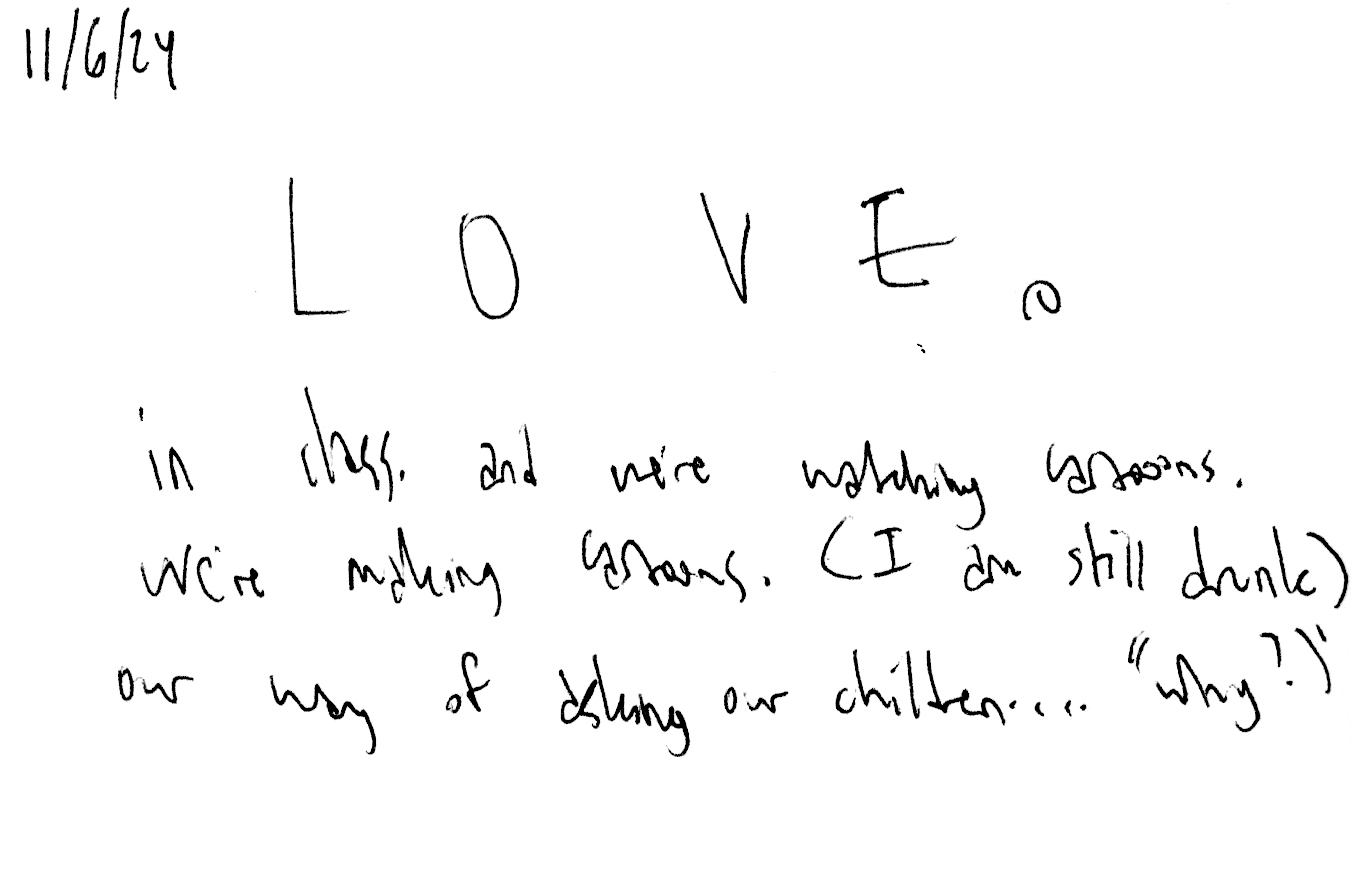 11/6/24
L O V E.
in class. and we're watching cartoons.
We're making cartoons. (I am still drunk)
our way of asking our children.... "why?"